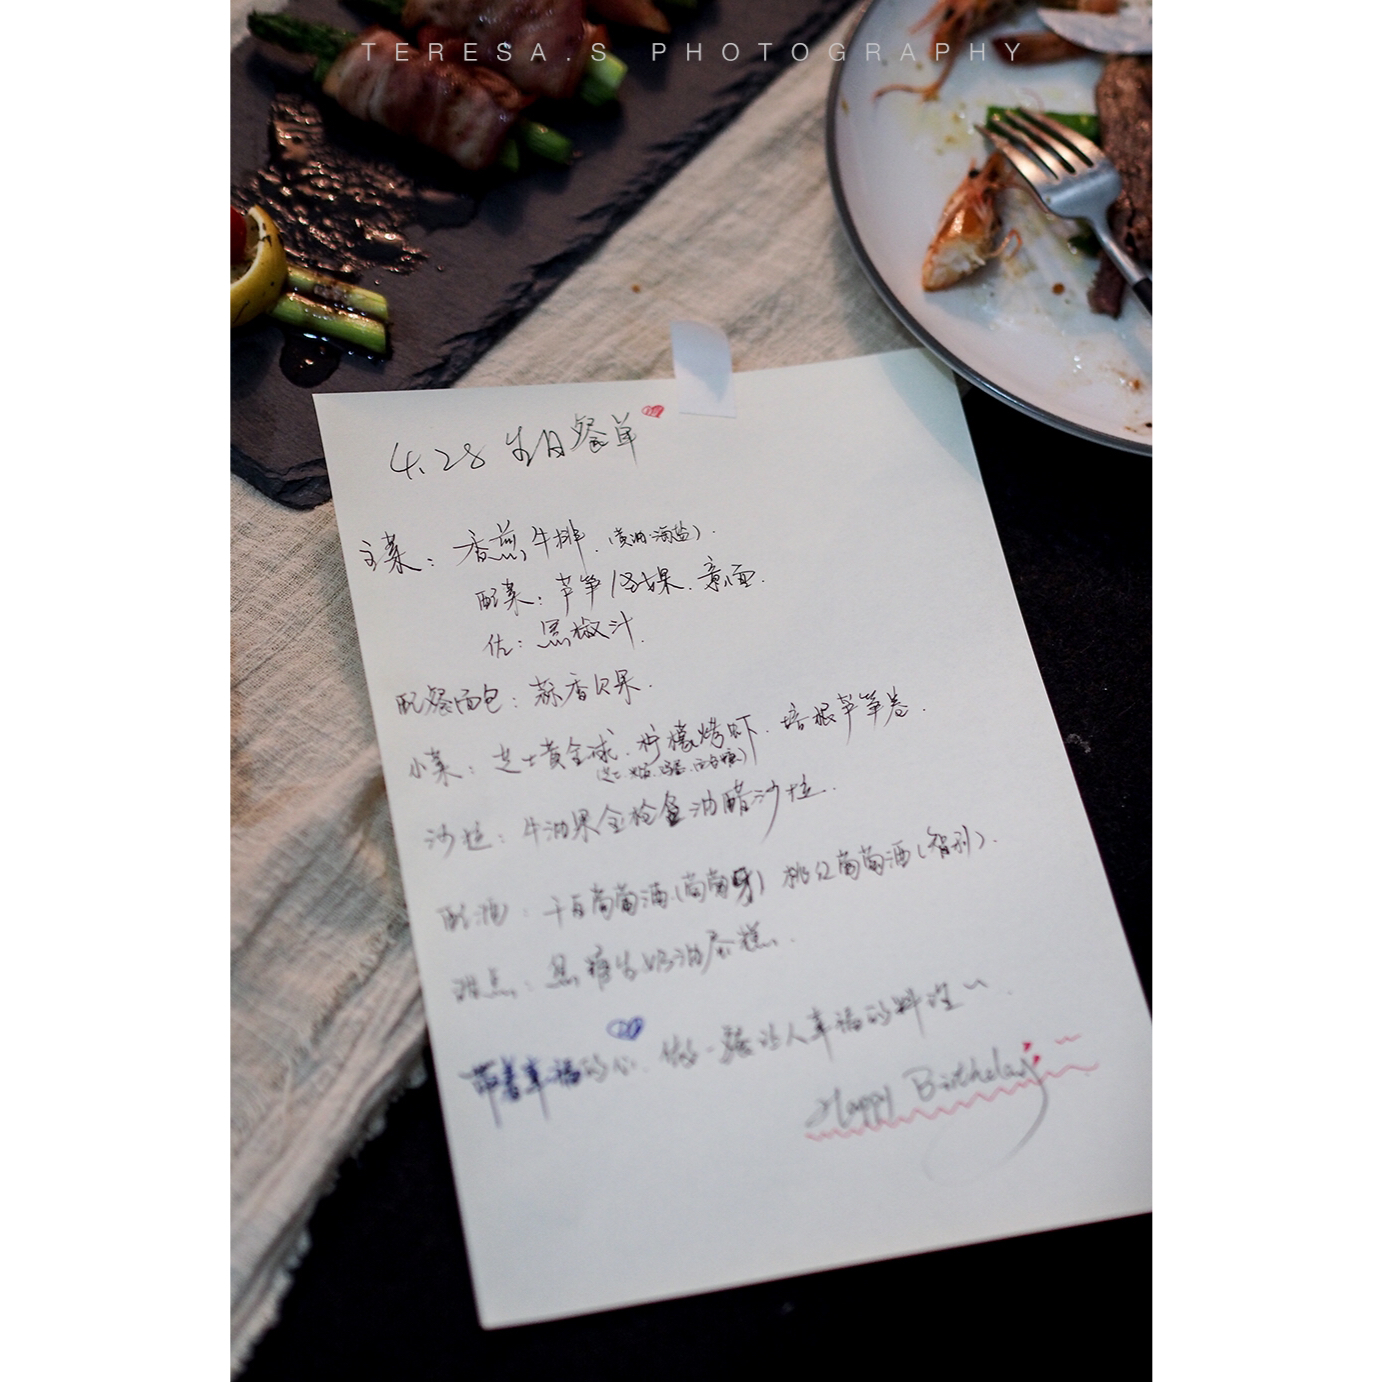 TERESA.S PHOTOGRAPHY
4.28 生日餐单
主菜：香煎牛排.（黄油.海盐）.
配菜：芦笋/圣女果.意面.
佐：黑椒汁.
配餐面包：蒜香贝果.
小菜：芝士黄金球.柠檬烤虾.培根芦笋卷.
沙拉：牛油果金枪鱼油醋沙拉.
配酒：干白葡萄酒（葡萄牙）桃红葡萄酒（智利）.
甜点：黑糖生奶油蛋糕.
带着幸福的心.做一餐让人幸福的料理~.
Happy Birthday